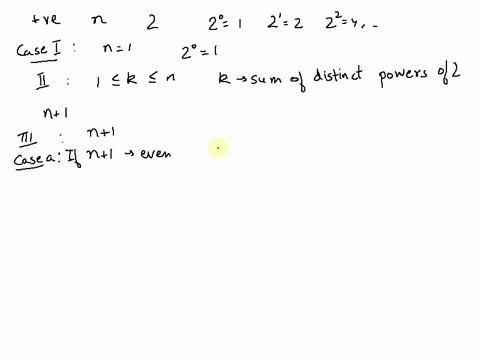 +ve n 2 2⁰ = 1 2¹ = 2 2² = 4, ..
Case I : n = 1 2⁰ = 1
II : 1 ≤ k ≤ n k → sum of distinct powers of 2
n+1
III : n+1
Case a : If n+1 → even